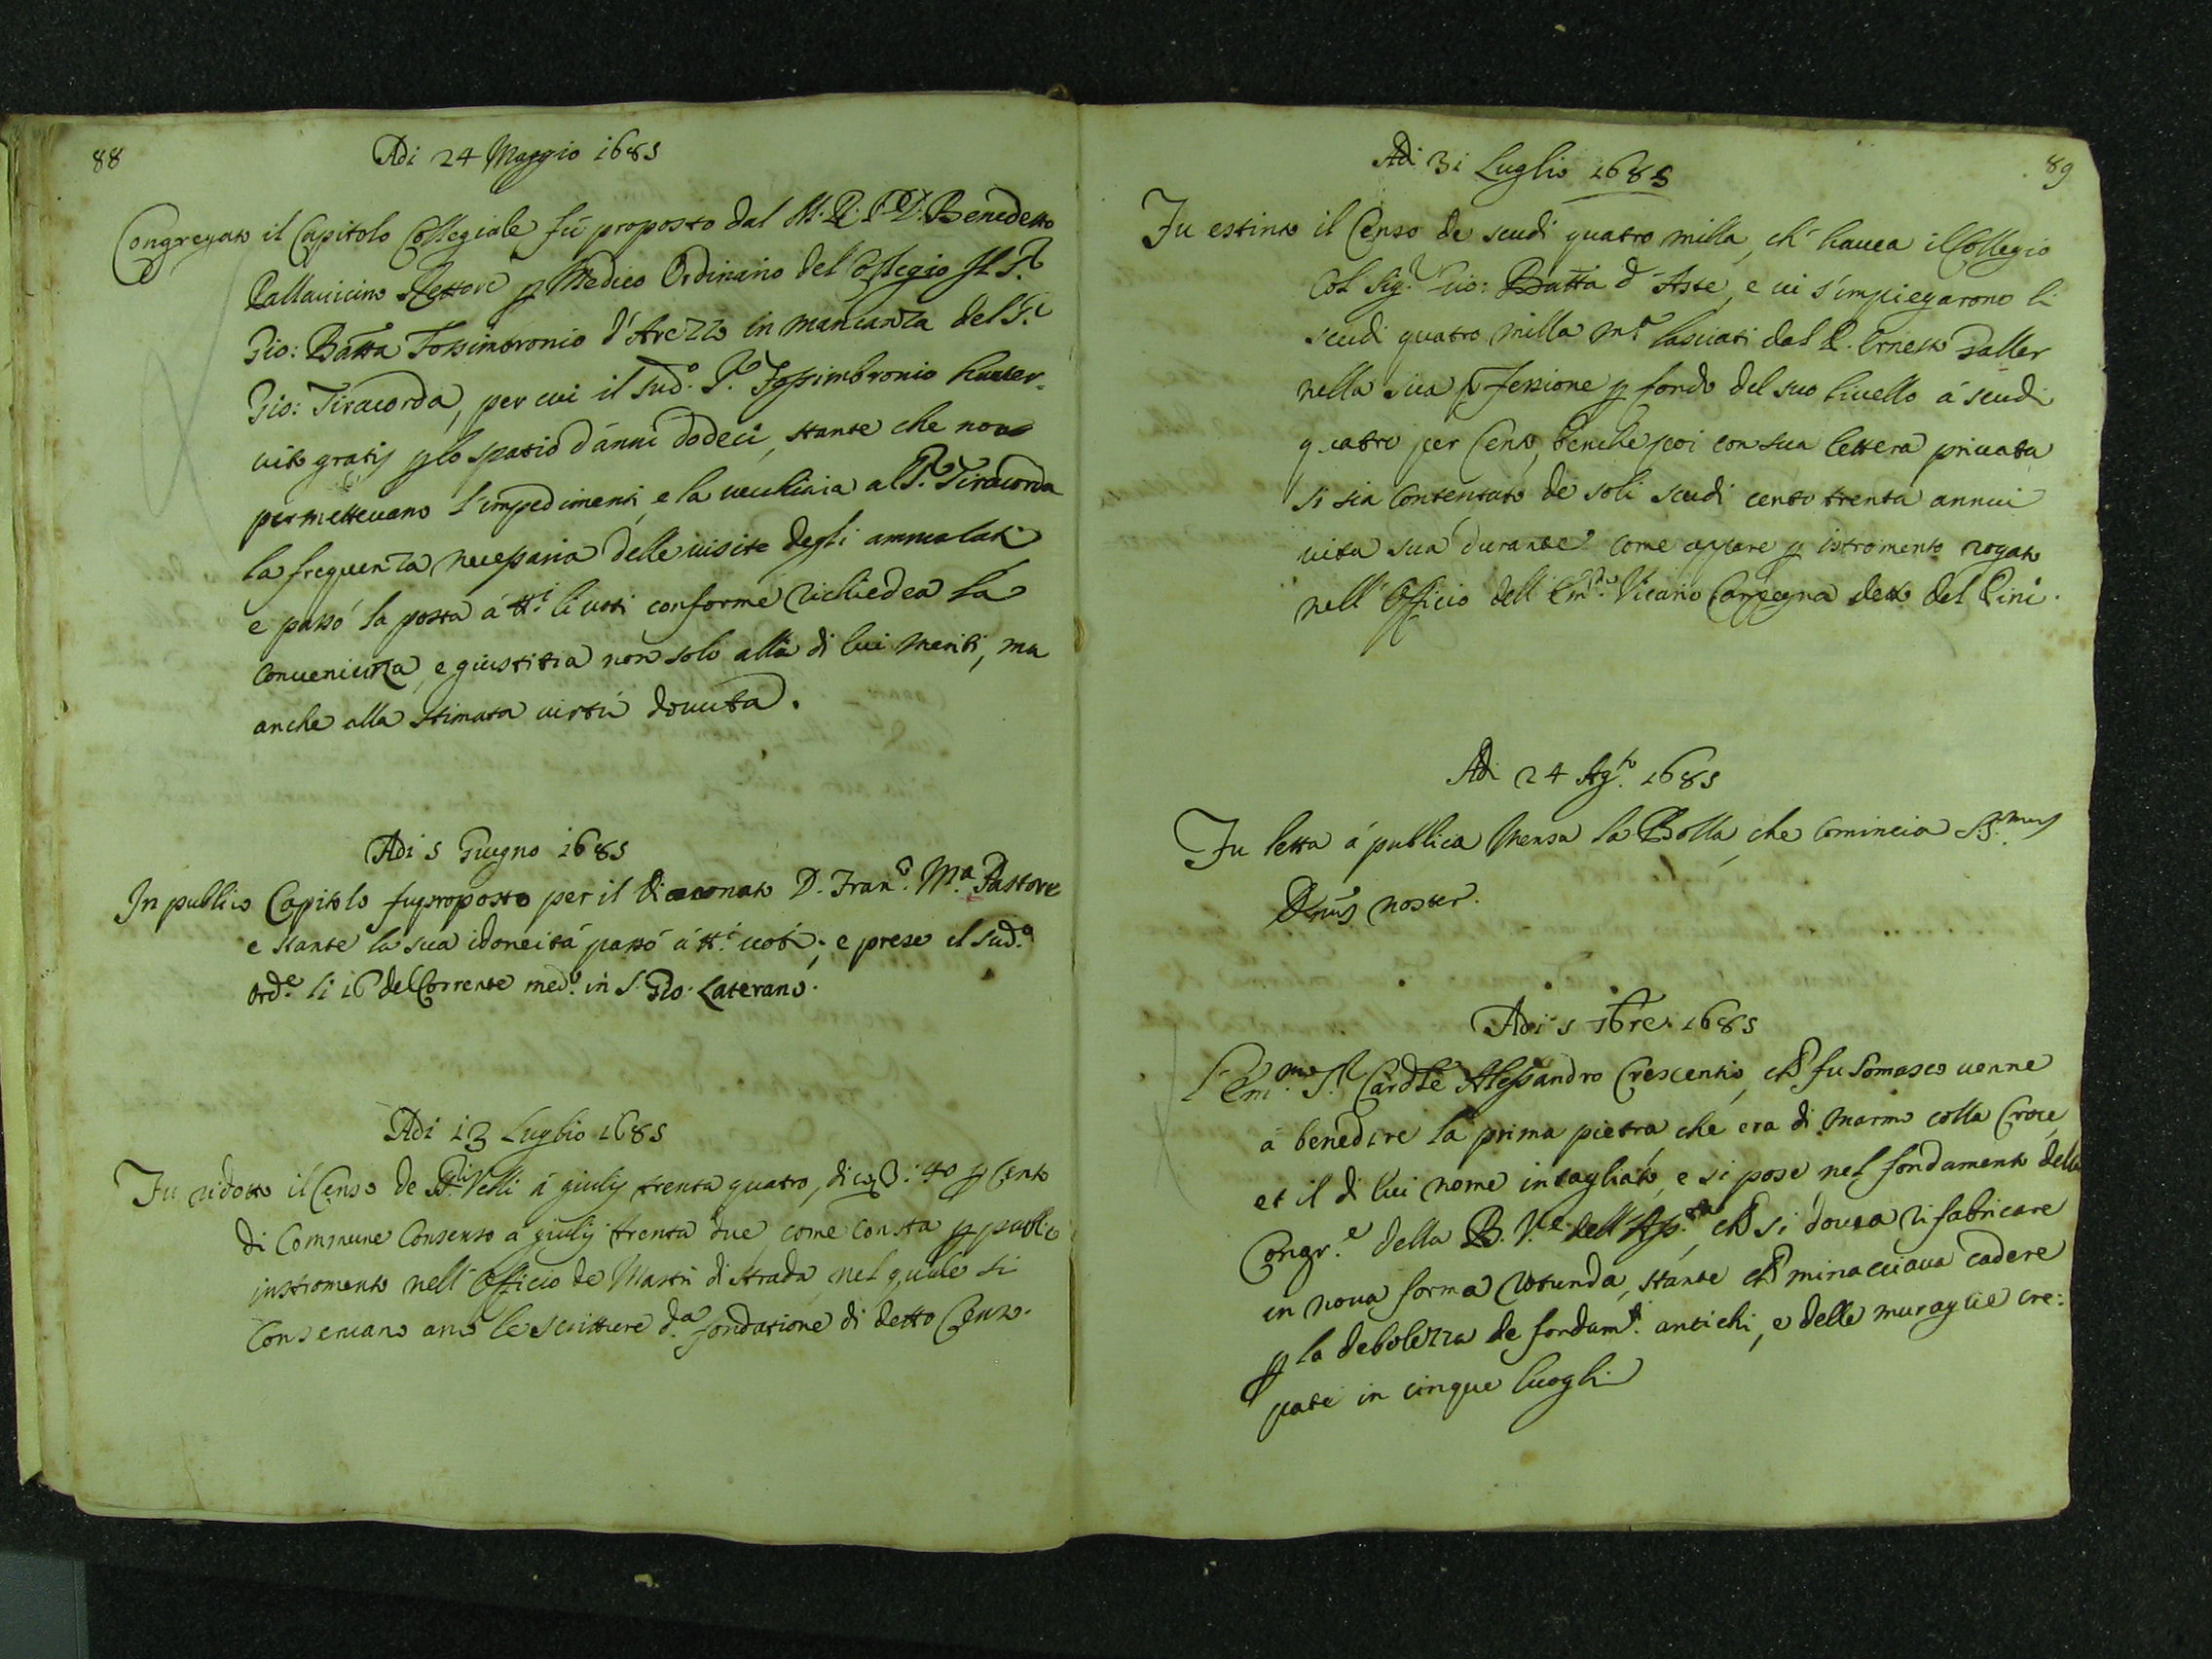 88
Adi 24 Maggio 1685
Congregato il Capitolo Collegiale fù proposto dal M. R. P. D. Benedetto
Pallavicino Rettore p Medico Ordinario del Collegio Il S.r
Gio: Batta Fossimbronio d'Arezzo in mancanza del S.r
Gio: Tiracorda, per cui il sud.o S.r Fossimbronio haueser-
uito gratis p lo spatio d'anni dodeci, stante che non
permetteuano l'impedimenti, e la uecchiaia al S.r Tiracorda
la frequenza necessaria delle uisite degli ammalati
e passò la posta à tt.i li uoti conforme richiedea la
conuenienza, e giustitia non solo alla di lui meriti, ma
anche alla stimata uirtù douuta.
Adi 5 Giugno 1685
In publico Capitolo fu proposto per il Diaconato D. Fran.o M.a Pastore
e stante la sua idoneità passò à tt.i uoti; e prese il sud.o
ord.e li 16 del Corrente med.o in S. Gio. Laterano.
Adi 13 Luglio 1685
Fu ridotto il Censo de SS.ri Velli à giulij trenta quatro, di 40 p Cento
di Commune Consenso a giulij trenta due, come consta p publico
instromento nell'Officio de Mastri di Strada, nel quale si
Conseruano anco le scritture d.a fondatione di detto Censo.
89
Adi 31 Luglio 1685
Fu estinto il Censo de scudi quatro milla, ch'hauea il Collegio
col Sig.r Gio: Batta d'Aste, e ui s'impiegarono li
scudi quatro milla m.ta lasciati dal P. Ernesto Saller
nella sua pfessione p fondo del suo liuello à scudi
quatro per Cento, benche poi con sua lettera priuata
si sia contentato de soli scudi cento trenta annui
uita sua durante come appare p istromento rogato
nell'Officio dell'Em.mo Vicario Carpegna detto del Pini.
Adi 24 Ag.to 1685
Fu letta à publica Mensa la Bolla, che comincia SS.mus
Dnūs noster.
Adi 5 7bre. 1685
L'Em.mo S.r Cardle Alessandro Crescentio, ch fu Somasco uenne
à benedire la prima pietra che era di marmo colla Croce,
et il di lui nome intagliato, e si pose nel fondamento della
Congr.e della B. V.e dell'Ass.ta ch si douea rifabricare
in noua forma rotunda, stante ch minacciaua cadere
p la debolezza de fondam.ti antichi, e delle muraglie cre:
pate in cinque luoghi